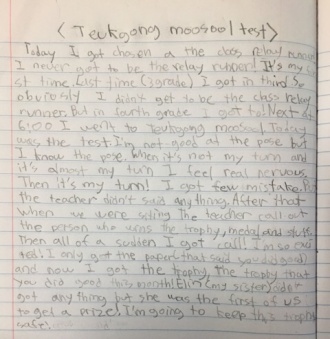 < Teukgong moosool test>
Today I got chosen a the class relay runner
I never got to be the relay runner! It's my
st time. Last time (3grade) I got in third So
obvously I didn't get to be the class relay
runner. But in fourth grade I got to! Next at
6:00 I went to Teukgong moosool. Today
was the test. I'm not good at the pose but
I know the pose. When it's not my turn and
it's almost my turn I feel real nervous.
Then it's my turn! I got few mistake. But
the teacher didn't said anything. After that
when we were sitting the teacher call out
the person who wins the trophy, medal and stuff.
Then all of a sudden I got call! I'm so exci
ted! I only got the paper that said you did good)
and now I got the trophy. The trophy that
you did good this month! Elin (my sister) didn't
got any thing but she was the first of us
to get a prize! I'm going to keep this trophy
safe!